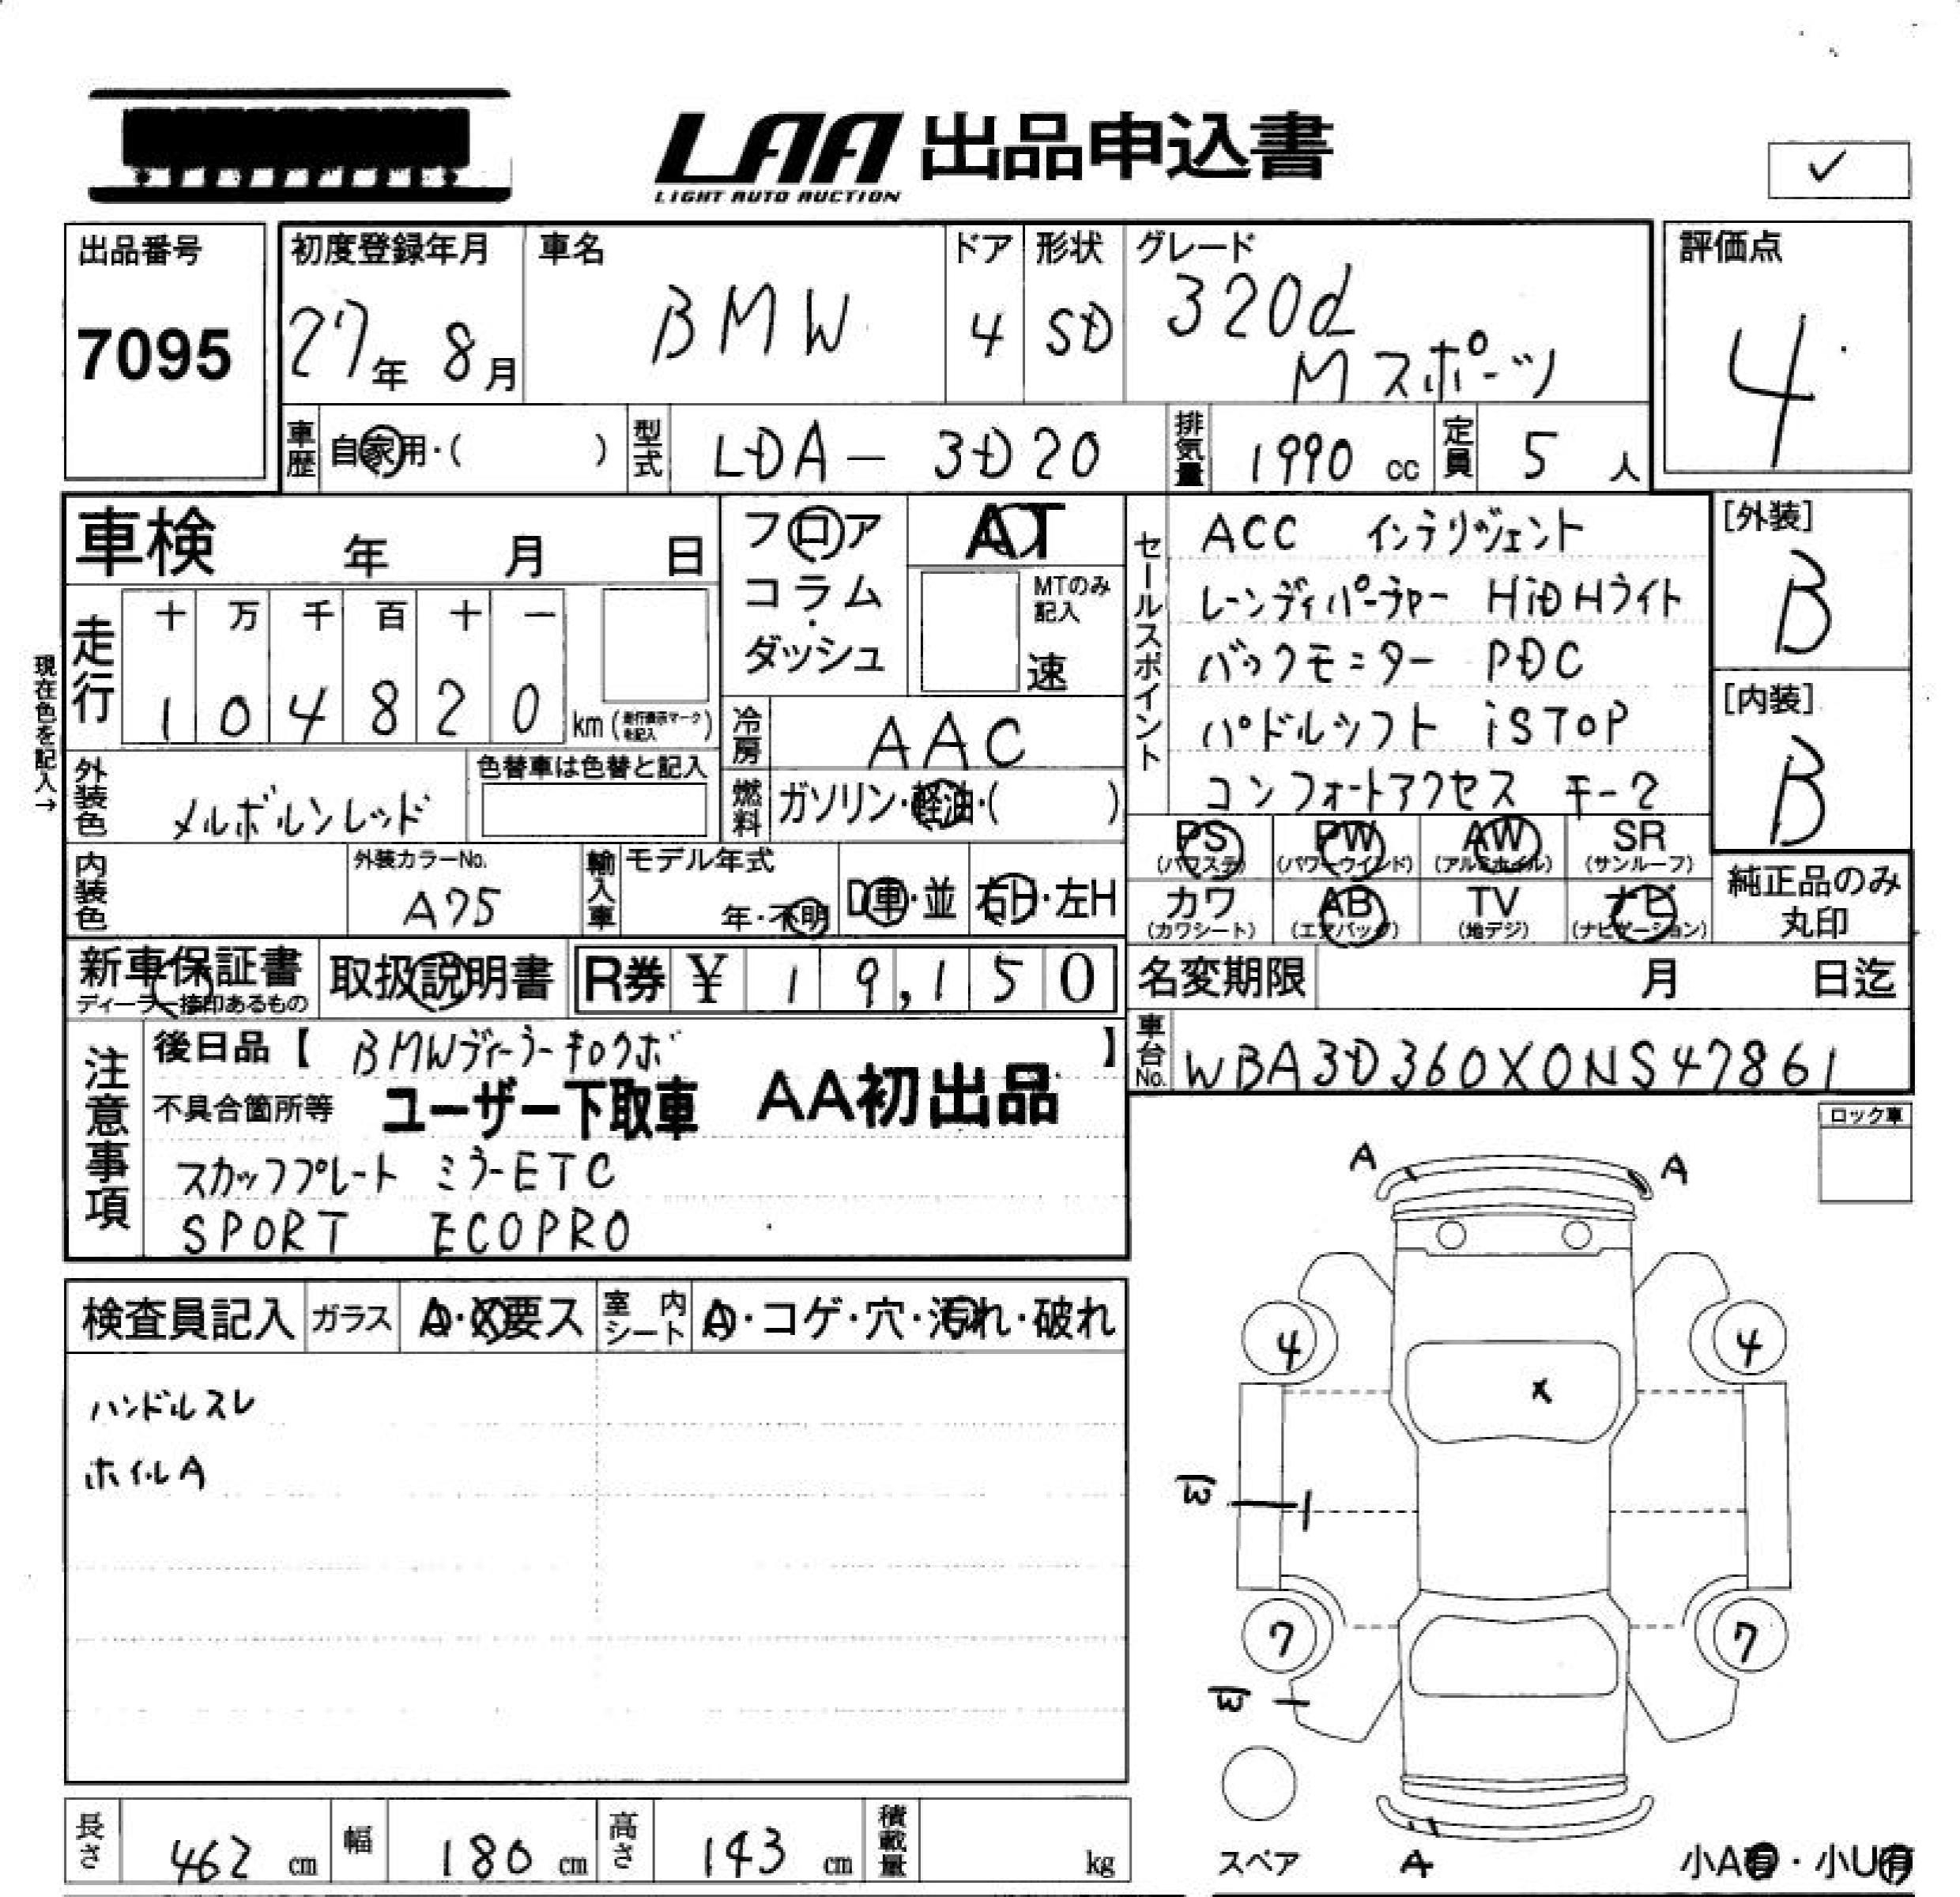 LAA 出品申込書
LIGHT AUTO AUCTION
✓
出品番号
7095
初度登録年月
27年 8月
車名
BMW
ドア
4
形状
SD
グレード
320d
Mスポーツ
評価点
4
車歴
自家用・( )
型式
LDA-3D20
排気量
1990 cc
定員
5 人
車検 年 月 日
現在色を記入→
走行
十 万 千 百 十 一
1 0 4 8 2 0 km (走行表示マークを記入)
フロア
コラム
・
ダッシュ
AT
MTのみ記入
速
冷房
AAC
燃料
ガソリン・軽油・( )
外装色
メルボルンレッド
色替車は色替と記入
内装色
外装カラーNo.
A75
輸入車
モデル年式
年・不明
D車・並
右H・左H
セールスポイント
ACC インテリジェント
レーンディパーチャー HiDHライト
バックモニター PDC
パドルシフト iSTOP
コンフォートアクセス キー2
[外装]
B
[内装]
B
PS (パワステ)
PW (パワーウインド)
AW (アルミホイル)
SR (サンルーフ)
カワ (カワシート)
AB (エアバック)
TV (地デジ)
ナビ (ナビゲーション)
純正品のみ
丸印
新車保証書
ディーラー捺印あるもの
取扱説明書
R券 ¥ 19,150
名変期限 月 日迄
車台No.
WBA3D360X0NS47861
注意事項
後日品【 BMWディーラーキロクボ 】
不具合箇所等 ユーザー下取車 AA初出品
スカッフプレート ミラーETC
SPORT ECOPRO
ロック車
検査員記入
ガラス
A・X要ス
室内シート
A・コゲ・穴・汚れ・破れ
ハンドルスレ
ホイルA
A
A
4
4
X
W
1
7
7
W
スペア
A
小A有・小U有
長さ
462 cm
幅
180 cm
高さ
143 cm
積載量
kg